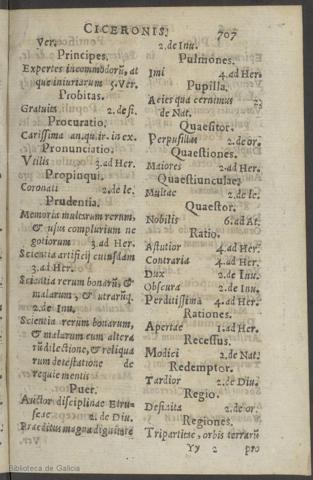 CICERONIS. 707
Ver.
Principes.
Expertes incommodorũ, at
que iniuriarum 5. Ver.
Probitas.
Gratuita 2. de fi.
Procuratio.
Carissima an. qu. ir. in ex.
Pronunciatio.
Vtilis 3. ad Her.
Propinqui.
Coronati 2. de le.
Prudentia.
Memoria multarum rerum,
& usus complurium ne
gotiorum 3. ad Her.
Scientia artificij cuiusdam
3. ad Her.
Scientia rerum bonarũ, &
malarum, & utrarũq.
2. de Inu.
Scientia rerum bonarum,
& malarum cum altera
rũ dilectione, & reliqua
rum detestatione de
requie mentis
Puer.
Auctor disciplinae Etru-
scae 2. de Diu.
Praeditus magna dignitate
2. de Inu.
Pulmones.
Imi 4. ad Her.
Pupilla.
Acies qua cernimus 2.
de Nat.
Quaesitor.
Perpusillus 2. de or.
Quaestiones.
Maiores 2. ad Her.
Quaestiunculae.
Multae 2. de le.
Quaestor.
Nobilis 6. ad At.
Ratio.
Astutior 4. ad Her.
Contraria 4. ad Her.
Dux 2. de Inu.
Obscura 2. de Inu.
Perditissima 4. ad Her.
Rationes.
Apertae 1. ad Her.
Recessus.
Modici 2. de Nat.
Redemptor.
Tardior 2. de Diu.
Regio.
Definita 2. de or.
Regiones.
Tripartitae, orbis terrarũ
Yy 2 pro
Biblioteca de Galicia